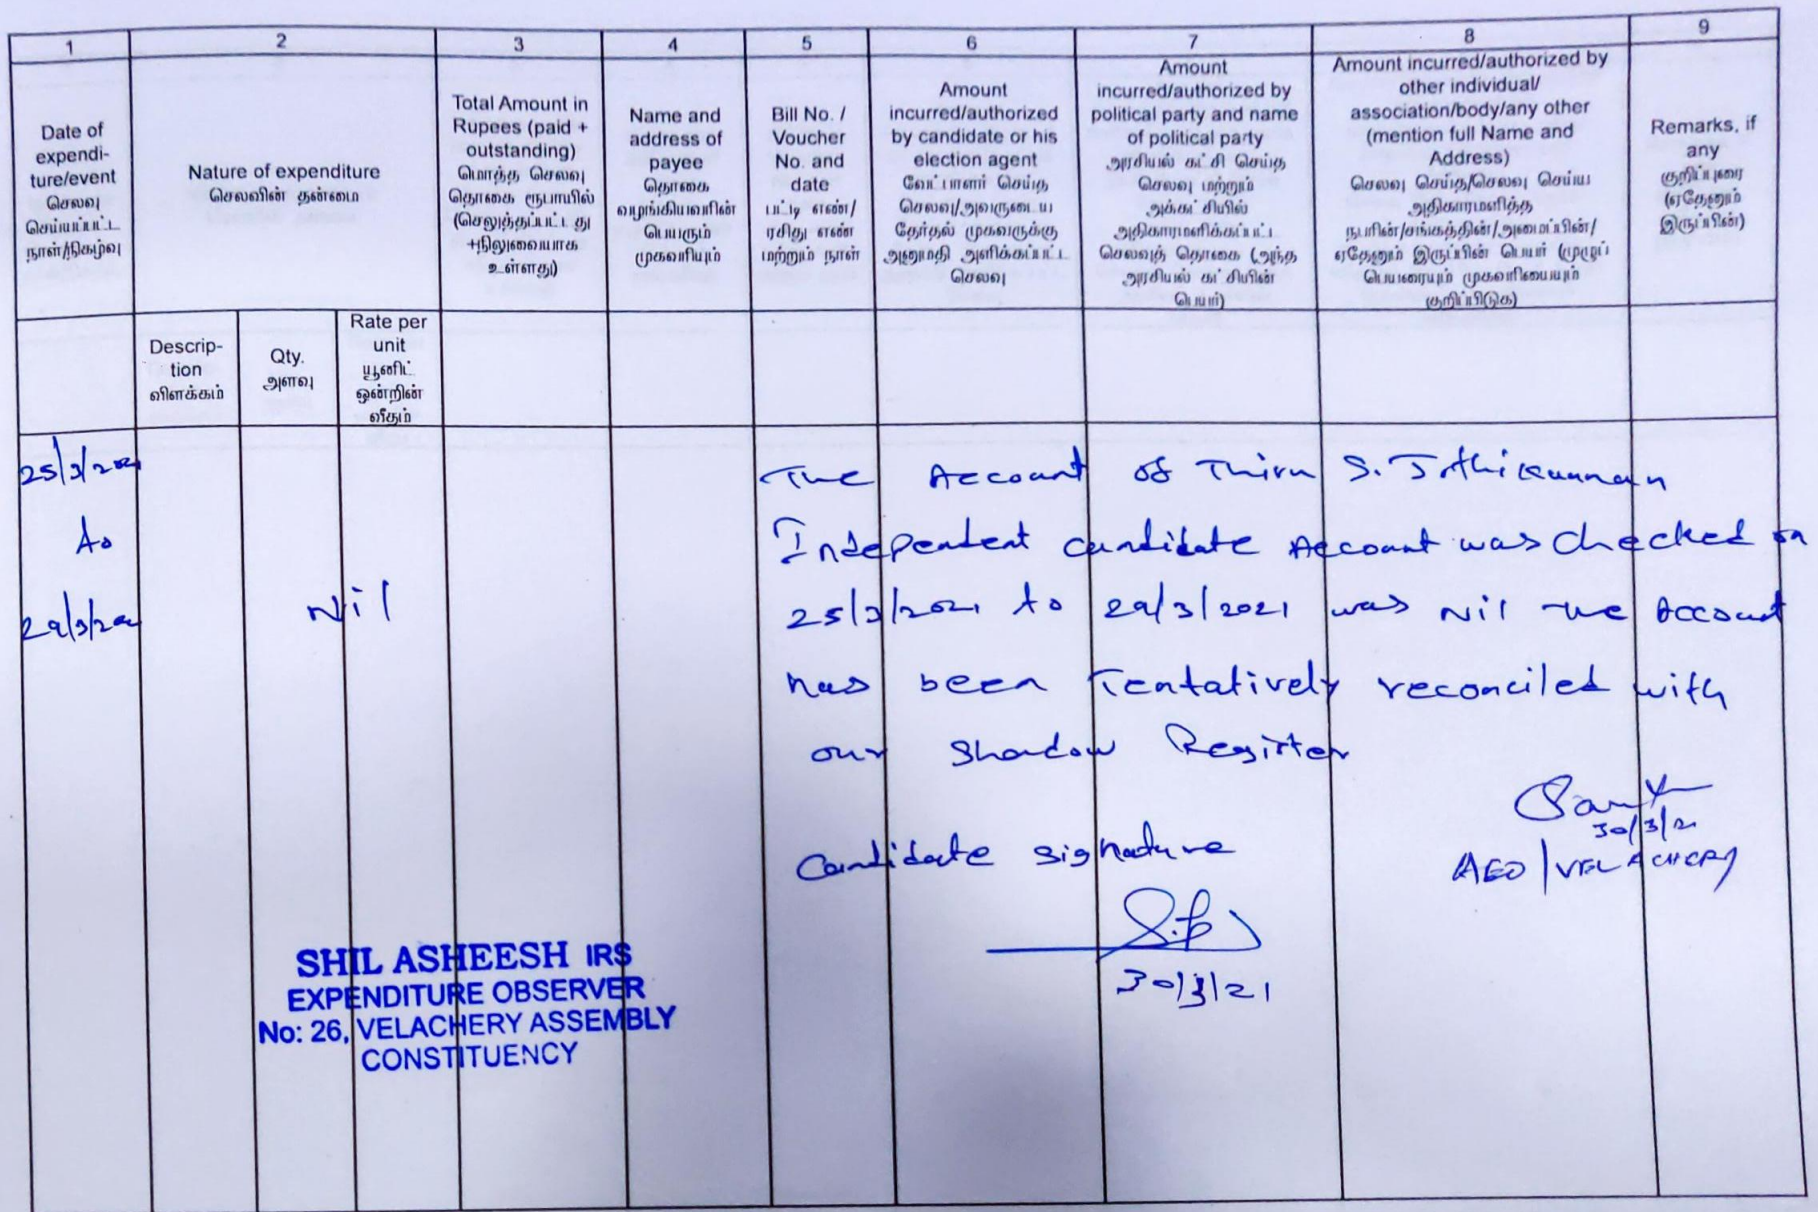 1 2 3 4 5 6 7 8 9
Date of
expendi-
ture/event
செலவு
செய்யப்பட்ட
நாள்/நிகழ்வு
Nature of expenditure
செலவின் தன்மை
Total Amount in
Rupees (paid +
outstanding)
மொத்த செலவு
தொகை ரூபாயில்
(செலுத்தப்பட்டது
+நிலுவையாக
உள்ளது)
Name and
address of
payee
தொகை
வழங்கியவரின்
பெயரும்
முகவரியும்
Bill No. /
Voucher
No. and
date
பட்டி எண்/
ரசிது எண்
மற்றும் நாள்
Amount
incurred/authorized
by candidate or his
election agent
வேட்பாளர் செய்த
செலவு/அவருடைய
தேர்தல் முகவருக்கு
அனுமதி அளிக்கப்பட்ட
செலவு
Amount
incurred/authorized by
political party and name
of political party
அரசியல் கட்சி செய்த
செலவு மற்றும்
அக்கட்சியில்
அதிகாரமளிக்கப்பட்ட
செலவுத் தொகை (அந்த
அரசியல் கட்சியின்
பெயர்)
Amount incurred/authorized by
other individual/
association/body/any other
(mention full Name and
Address)
செலவு செய்த/செலவு செய்ய
அதிகாரமளித்த
நபரின்/சங்கத்தின்/அமைப்பின்/
ஏதேனும் இருப்பின் பெயர் (முழுப்
பெயரையும் முகவரியையும்
குறிப்பிடுக)
Remarks, if
any
குறிப்புரை
(ஏதேனும்
இருப்பின்)
Descrip-
tion
விளக்கம்
Qty.
அளவு
Rate per
unit
யூனிட்
ஒன்றின்
வீதம்
25/3/2021
to
29/3/2021
Nil
The Account of Thiru S. Jothikannan
Independent candidate Account was checked on
25/3/2021 to 29/3/2021 was Nil the Account
has been Tentatively reconciled with
our Shadow Register
30/3/21
AEO/VELACHERY
Candidate signature
30/3/21
SHIL ASHEESH IRS
EXPENDITURE OBSERVER
No: 26, VELACHERY ASSEMBLY
CONSTITUENCY